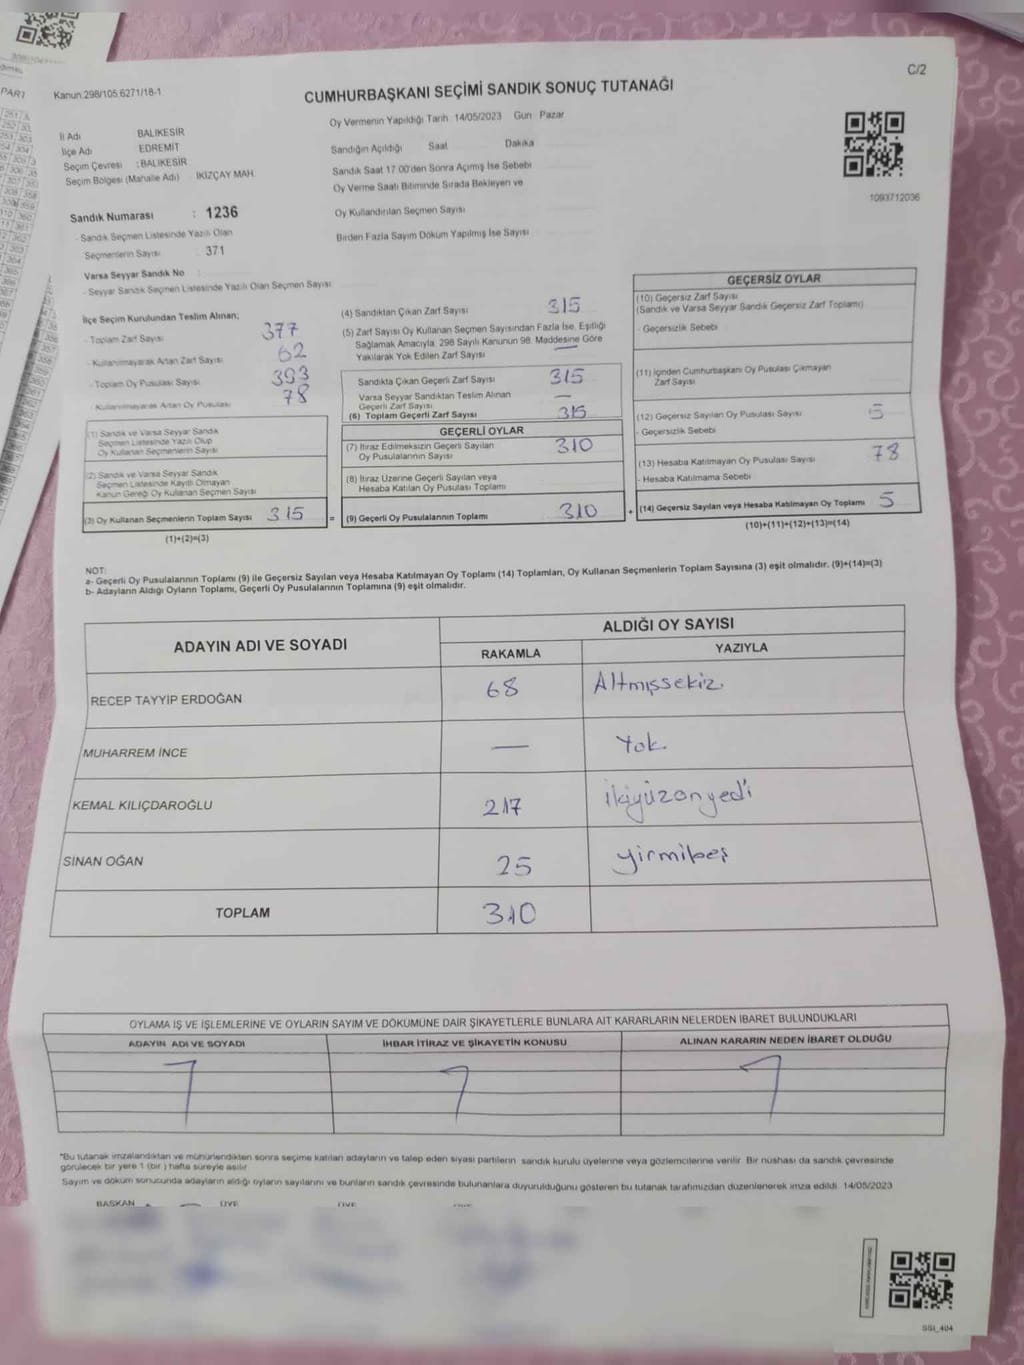 C/2
Kanun.298/105,6271/18-1
CUMHURBAŞKANI SEÇİMİ SANDIK SONUÇ TUTANAĞI
Oy Vermenin Yapıldığı Tarih 14/05/2023 Gün Pazar
İl Adı BALIKESİR
İlçe Adı EDREMİT
Seçim Çevresi : BALIKESİR
Seçim Bölgesi (Mahalle Adı) İKİZÇAY MAH.
Sandığın Açıldığı Saat Dakika
Sandık Saat 17.00'den Sonra Açımış İse Sebebi
Oy Verme Saati Bitiminde Sırada Bekleyen ve
Oy Kullandırılan Seçmen Sayısı
Birden Fazla Sayım Döküm Yapılmış İse Sayısı
1093712036
Sandık Numarası : 1236
- Sandık Seçmen Listesinde Yazılı Olan
Seçmenlerin Sayısı : 371
Varsa Seyyar Sandık No
- Seyyar Sandık Seçmen Listesinde Yazılı Olan Seçmen Sayısı
İlçe Seçim Kurulundan Teslim Alınan;
- Toplam Zarf Sayısı 377
- Kullanılmayarak Artan Zarf Sayısı 62
- Toplam Oy Pusulası Sayısı 393
- Kullanılmayarak Artan Oy Pusulası 78
(1) Sandık ve Varsa Seyyar Sandık
Seçmen Listesinde Yazılı Olup
Oy Kullanan Seçmenlerin Sayısı
(2) Sandık ve Varsa Seyyar Sandık
Seçmen Listesinde Kayıtlı Olmayan
Kanun Gereği Oy Kullanan Seçmen Sayısı
(3) Oy Kullanan Seçmenlerin Toplam Sayısı 315 =
(1)+(2)=(3)
(4) Sandıktan Çıkan Zarf Sayısı 315
(5) Zarf Sayısı Oy Kullanan Seçmen Sayısından Fazla İse, Eşitliği
Sağlamak Amacıyla, 298 Sayılı Kanunun 98. Maddesine Göre
Yakılarak Yok Edilen Zarf Sayısı —
Sandıkta Çıkan Geçerli Zarf Sayısı 315
Varsa Seyyar Sandıktan Teslim Alınan
Geçerli Zarf Sayısı —
(6) Toplam Geçerli Zarf Sayısı 315
GEÇERLİ OYLAR
(7) İtiraz Edilmeksizin Geçerli Sayılan
Oy Pusulalarının Sayısı 310
(8) İtiraz Üzerine Geçerli Sayılan veya
Hesaba Katılan Oy Pusulası Toplamı
(9) Geçerli Oy Pusulalarının Toplamı 310 +
GEÇERSİZ OYLAR
(10) Geçersiz Zarf Sayısı
(Sandık ve Varsa Seyyar Sandık Geçersiz Zarf Toplamı)
- Geçersizlik Sebebi
(11) İçinden Cumhurbaşkanı Oy Pusulası Çıkmayan
Zarf Sayısı
(12) Geçersiz Sayılan Oy Pusulası Sayısı 5
- Geçersizlik Sebebi
(13) Hesaba Katılmayan Oy Pusulası Sayısı 78
- Hesaba Katılmama Sebebi
(14) Geçersiz Sayılan veya Hesaba Katılmayan Oy Toplamı 5
(10)+(11)+(12)+(13)=(14)
NOT:
a- Geçerli Oy Pusulalarının Toplamı (9) ile Geçersiz Sayılan veya Hesaba Katılmayan Oy Toplamı (14) Toplamları, Oy Kullanan Seçmenlerin Toplam Sayısına (3) eşit olmalıdır. (9)+(14)=(3)
b- Adayların Aldığı Oyların Toplamı, Geçerli Oy Pusulalarının Toplamına (9) eşit olmalıdır.
ADAYIN ADI VE SOYADI
ALDIĞI OY SAYISI
RAKAMLA YAZIYLA
RECEP TAYYİP ERDOĞAN 68 Altmışsekiz
MUHARREM İNCE — Yok
KEMAL KILIÇDAROĞLU 217 ikiyüzonyedi
SİNAN OĞAN 25 yirmibeş
TOPLAM 310
OYLAMA İŞ VE İŞLEMLERİNE VE OYLARIN SAYIM VE DÖKÜMÜNE DAİR ŞİKAYETLERLE BUNLARA AİT KARARLARIN NELERDEN İBARET BULUNDUKLARI
ADAYIN ADI VE SOYADI İHBAR İTİRAZ VE ŞİKAYETİN KONUSU ALINAN KARARIN NEDEN İBARET OLDUĞU
*Bu tutanak imzalandıktan ve mühürlendikten sonra seçime katılan adayların ve talep eden siyasi partilerin sandık kurulu üyelerine veya gözlemcilerine verilir. Bir nüshası da sandık çevresinde
görülecek bir yere 1 (bir) hafta süreyle asılır.
Sayım ve döküm sonucunda adayların aldığı oyların sayılarını ve bunların sandık çevresinde bulunanlara duyurulduğunu gösteren bu tutanak tarafımızdan düzenlenerek imza edildi. 14/05/2023
BAŞKAN ÜYE ÜYE
SSI_404